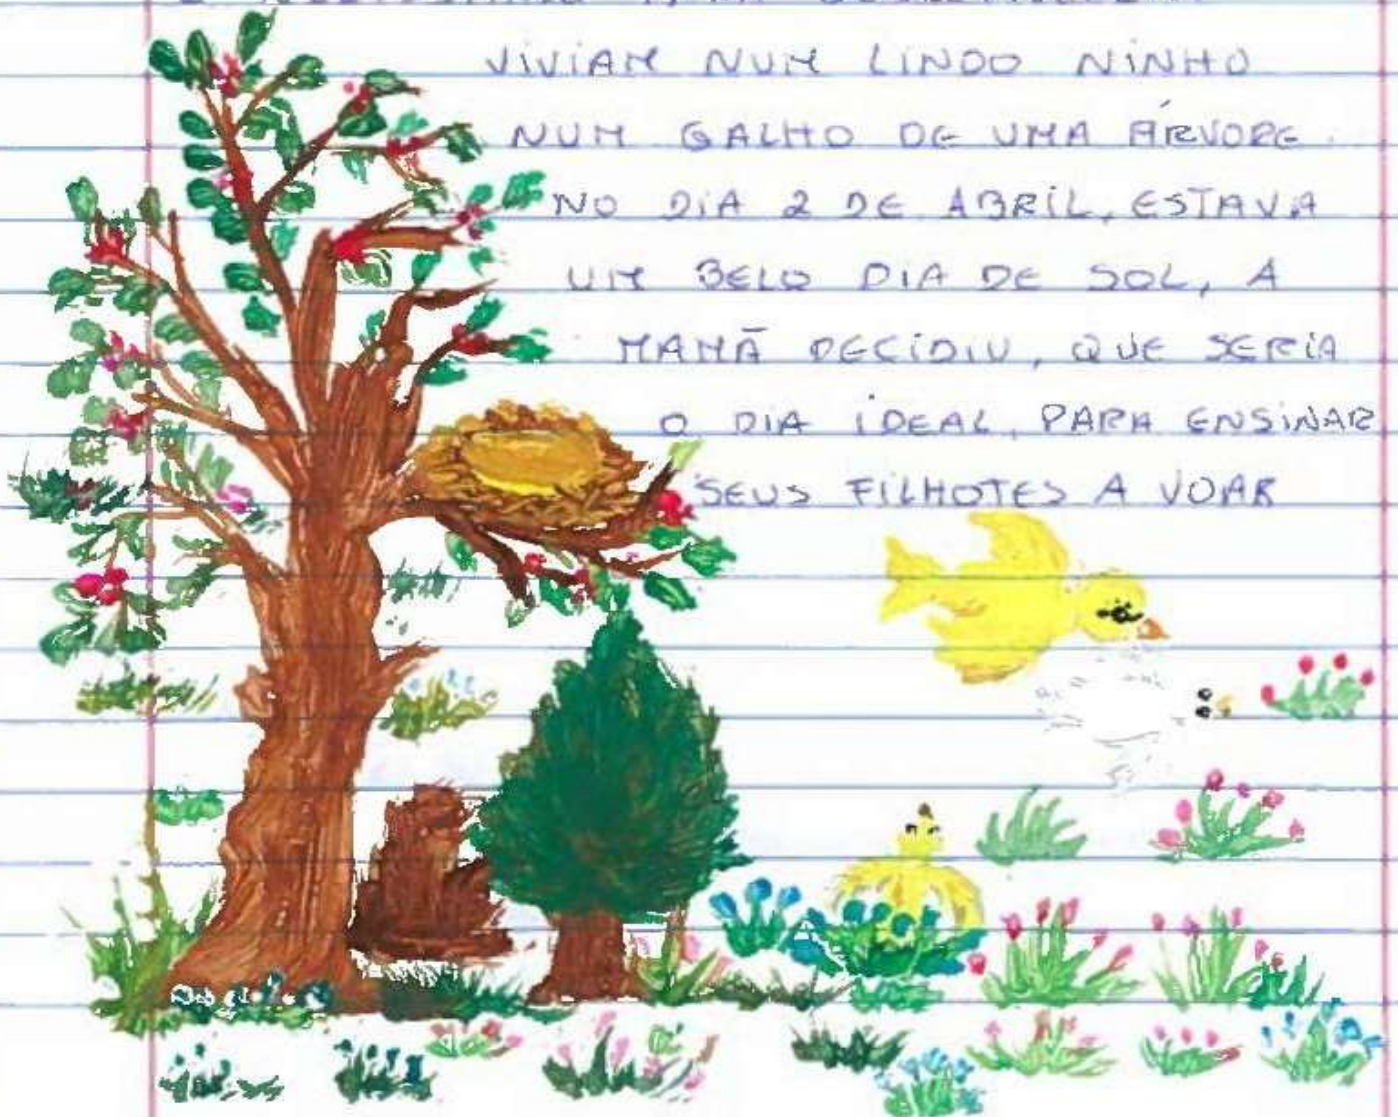 VIVIAM NUM LINDO NINHO
NUM GALHO DE UMA ÁRVORE.
NO DIA 2 DE ABRIL, ESTAVA
UM BELO DIA DE SOL, A
MAMÃ DECIDIU, QUE SERIA
O DIA IDEAL, PARA ENSINAR
SEUS FILHOTES A VOAR